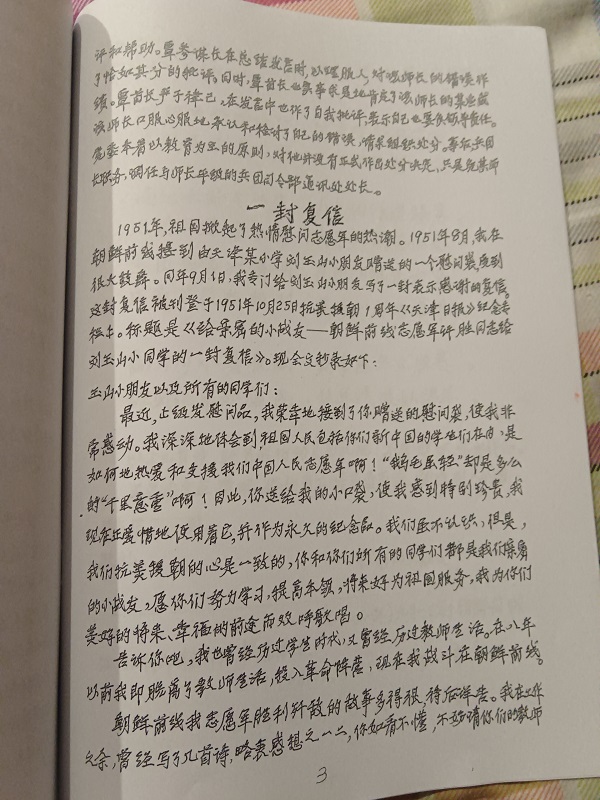 评和帮助。覃参谋长在总结发言时,以理服人,对该师长的错误作
了恰如其分的批评。同时,覃首长也实事求是地肯定了该师长的某些成
绩。覃首长严于律己,在发言中也作了自我批评,表示自己也要负领导责任。
该师长口服心服地承认和检讨了自己的错误,请求组织处分。事后兵团
党委本着以教育为主的原则,对他并没有正式作出处分决定,只是免其师
长职务,调任与师长平级的兵团司令部通讯处处长。
一封复信
1951年,祖国掀起了热情慰问志愿军的热潮。1951年8月,我在
朝鲜前线接到由天津某小学刘玉山小朋友赠送的一个慰问袋,受到
很大鼓舞。同年9月1日,我专门给刘玉山小朋友写了一封表示感谢的复信。
这封复信被刊登于1951年10月25日抗美援朝1周年《天津日报》纪念专
栏上。标题是《给亲爱的小战友——朝鲜前线志愿军许胜同志给
刘玉山小同学的一封复信》。现全文抄录如下:
玉山小朋友以及所有的同学们:
最近,上级发慰问品,我荣幸地接到了你赠送的慰问袋,使我非
常感动。我深深地体会到祖国人民包括你们新中国的学生们在内,是
如何地热爱和支援我们中国人民志愿军啊!“鹅毛虽轻”却是多么
的“千里意重”啊!因此,你送给我的小口袋,使我感到特别珍贵,我
现在正爱惜地使用着它,并作为永久的纪念品。我们虽不认识,但是,
我们抗美援朝的心是一致的,你和你们所有的同学们都是我们亲爱
的小战友,愿你们努力学习,提高本领,将来好为祖国服务,我为你们
美好的将来、幸福的前途而欢呼歌唱。
告诉你吧,我也曾经历过学生时代,又曾经历过教师生活。在八年
以前我即脱离了教师生活,投入革命阵营,现在我战斗在朝鲜前线。
朝鲜前线我志愿军胜利歼敌的故事多得很,待后详告。我在工作
之余,曾经写了几首诗,略表感想之一二,你如看不懂,不妨请你们的教师
3